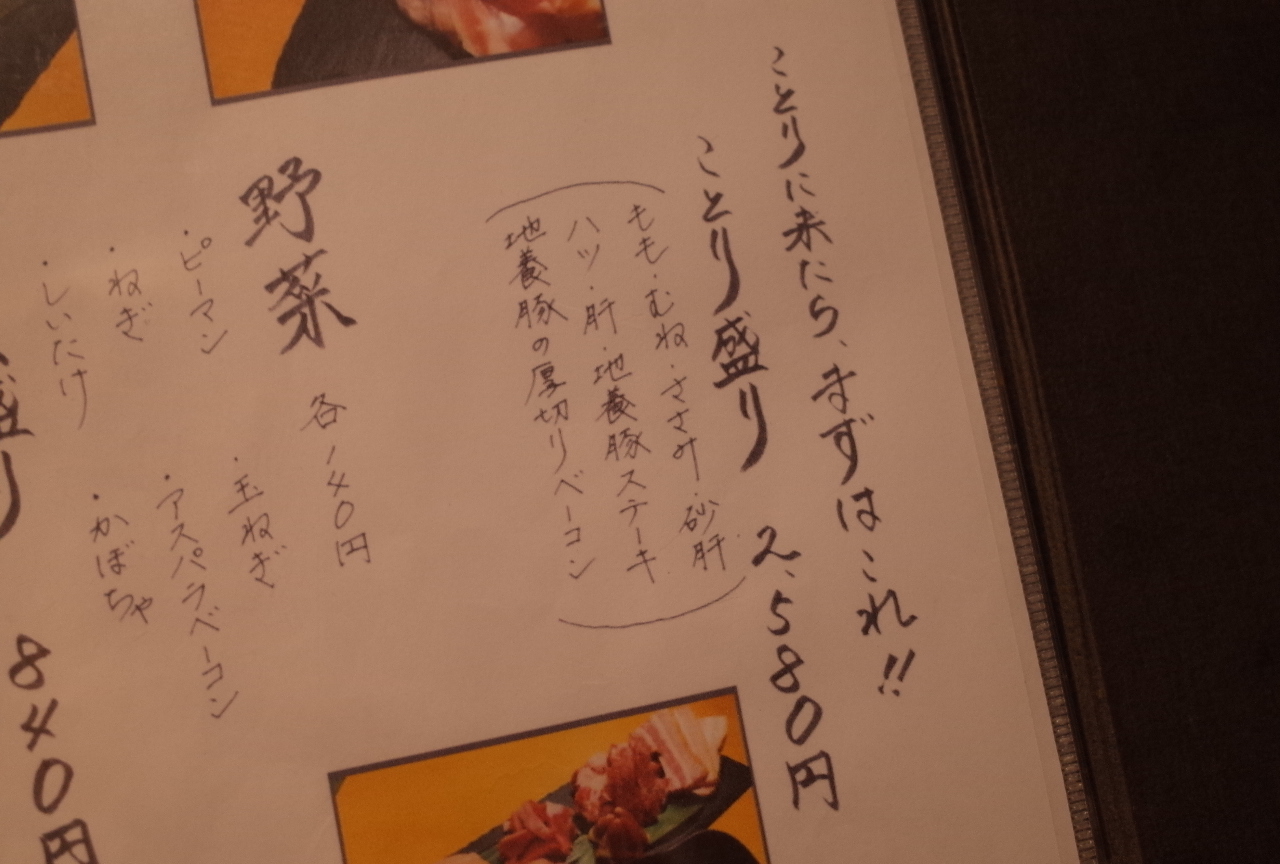 ことりに来たら、まずはこれ!!
ことり盛り 2,580円
もも・むね・ささみ・砂肝
ハツ・肝・地養豚ステーキ
地養豚の厚切りベーコン
野菜 各140円
・ピーマン
・玉ねぎ
・ねぎ
・アスパラベーコン
・しいたけ
・かぼちゃ
盛り 840円